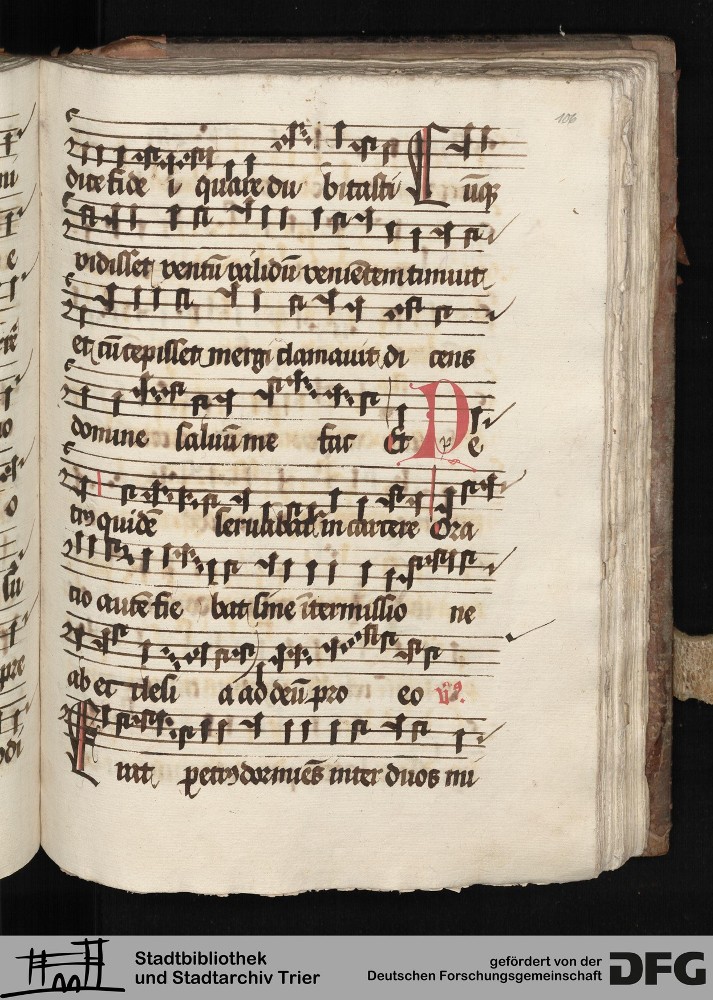 106
dice fide i quare du bitasti Cūq̄
vidisset ventū validū venietem timuit
et cū cepisset mergi clamauit di cens
domine saluū me fac Et Pe
trꝰ quidē seruabat̄ in carcere Ora
tio autē fie bat sine īt̄missio ne
ab ec clesi a ad deū pro eo v̄ꝰ
Erat petrꝰ dormiēs inter duos mi
Stadtbibliothek
und Stadtarchiv Trier
gefördert von der
Deutschen Forschungsgemeinschaft
DFG